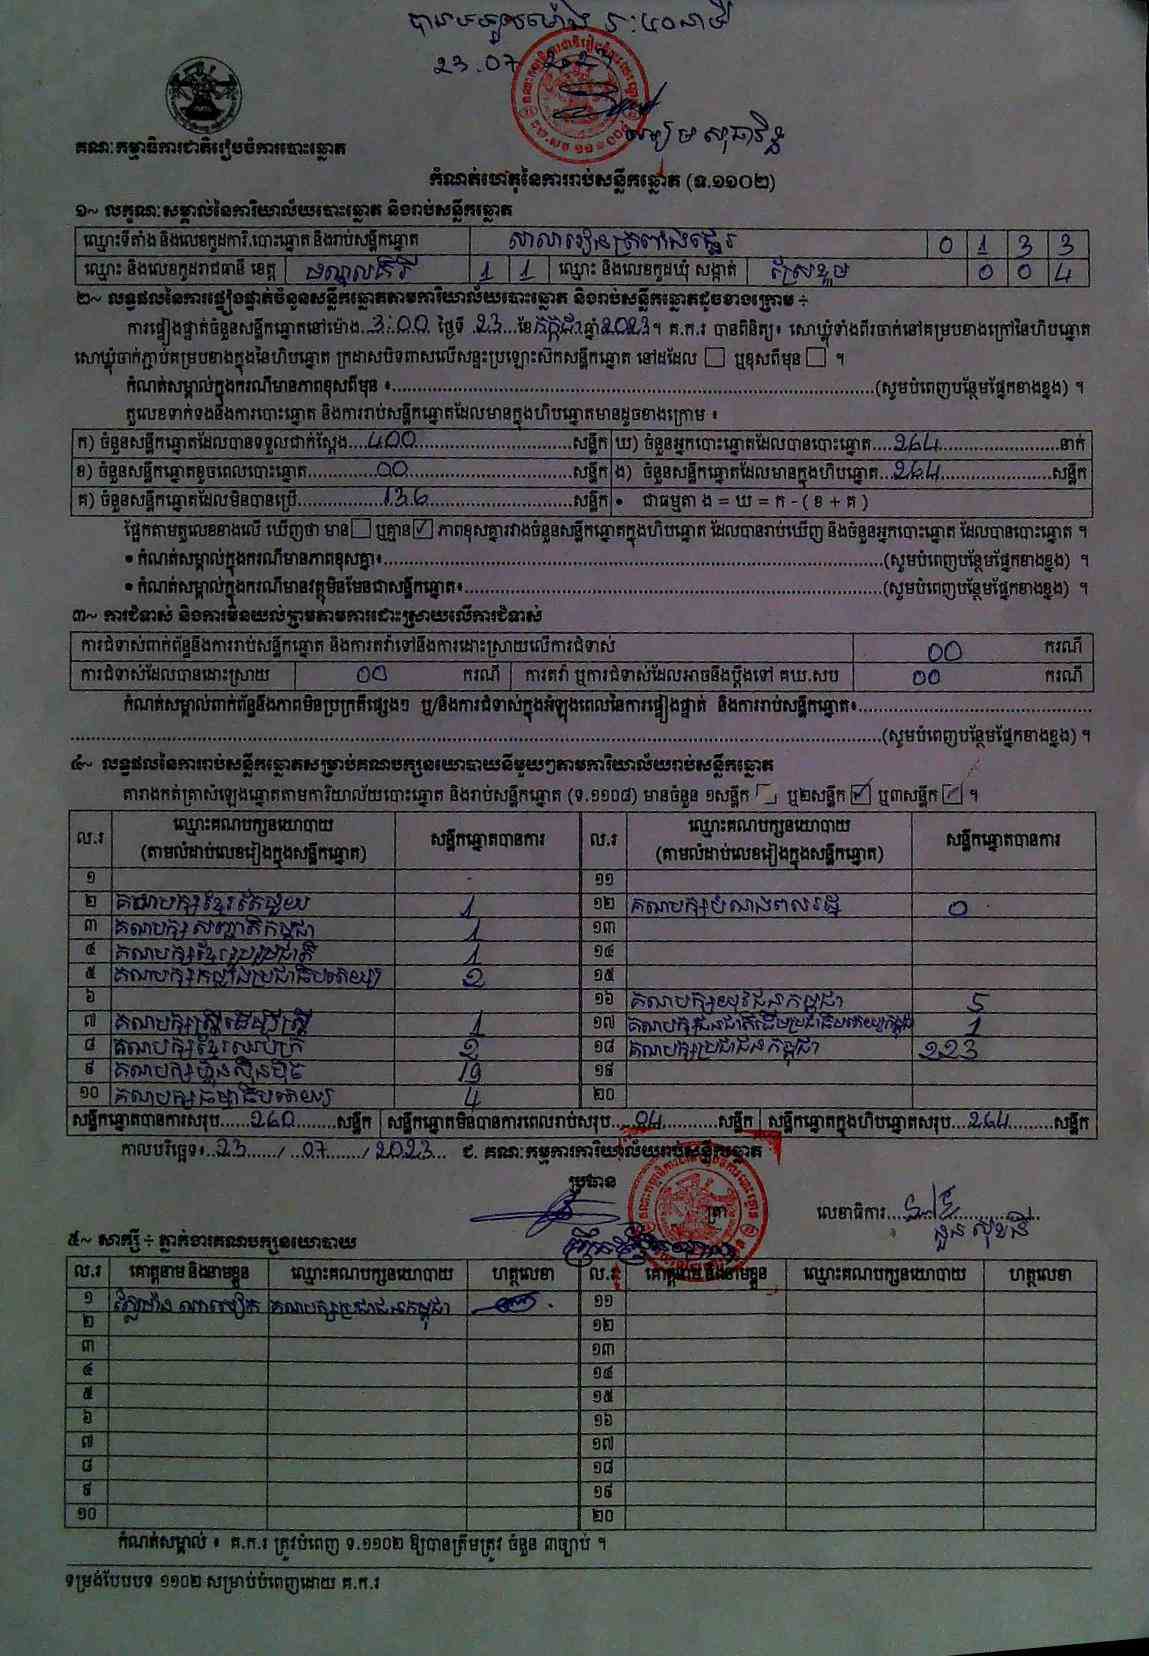 បានទទួលម៉ោង ៥:៤០នាទី
23.07.2023
គណៈកម្មាធិការជាតិរៀបចំការបោះឆ្នោត
កំណត់ហេតុនៃការរាប់សន្លឹកឆ្នោត (ទ.១១០២)
១~ លក្ខណៈសម្គាល់នៃការិយាល័យបោះឆ្នោត និងរាប់សន្លឹកឆ្នោត
ឈ្មោះទីតាំង និងលេខកូដការិ.បោះឆ្នោត និងរាប់សន្លឹកឆ្នោត 0 1 3 3
ឈ្មោះ និងលេខកូដរាជធានី ខេត្ត មណ្ឌលគិរី 1 1 ឈ្មោះ និងលេខកូដឃុំ សង្កាត់ 0 0 4
២~ លទ្ធផលនៃការផ្ទៀងផ្ទាត់ចំនួនសន្លឹកឆ្នោតតាមការិយាល័យបោះឆ្នោត និងរាប់សន្លឹកឆ្នោតដូចខាងក្រោម ÷
ការផ្ទៀងផ្ទាត់ចំនួនសន្លឹកឆ្នោតនៅម៉ោង 3:00 ថ្ងៃទី 23 ខែ កក្កដា ឆ្នាំ 2023 ។ គ.ក.រ បានពិនិត្យ៖ សោឃ្លុំទាំងពីរចាក់នៅគម្របខាងក្រៅនៃហិបឆ្នោត
សោឃ្លុំចាក់ភ្ជាប់គម្របខាងក្នុងនៃហិបឆ្នោត ក្រដាសបិទពាសលើសន្ទះប្រឡោះសឹកសន្លឹកឆ្នោត នៅដដែល ☐ ឬខុសពីមុន ☐ ។
កំណត់សម្គាល់ក្នុងករណីមានភាពខុសពីមុន ៖ (សូមបំពេញបន្ថែមផ្នែកខាងខ្នង) ។
តួលេខទាក់ទងនឹងការបោះឆ្នោត និងការរាប់សន្លឹកឆ្នោតដែលមានក្នុងហិបឆ្នោតមានដូចខាងក្រោម ៖
ក) ចំនួនសន្លឹកឆ្នោតដែលបានទទួលជាក់ស្តែង 400 សន្លឹក ឃ) ចំនួនអ្នកបោះឆ្នោតដែលបានបោះឆ្នោត 264 នាក់
ខ) ចំនួនសន្លឹកឆ្នោតខូចពេលបោះឆ្នោត 00 សន្លឹក ង) ចំនួនសន្លឹកឆ្នោតដែលមានក្នុងហិបឆ្នោត 264 សន្លឹក
គ) ចំនួនសន្លឹកឆ្នោតដែលមិនបានប្រើ 136 សន្លឹក • ជាធម្មតា ង = ឃ = ក - ( ខ + គ )
ផ្អែកតាមតួលេខខាងលើ ឃើញថា មាន ☐ ឬគ្មាន ☑ ភាពខុសគ្នារវាងចំនួនសន្លឹកឆ្នោតក្នុងហិបឆ្នោត ដែលបានរាប់ឃើញ និងចំនួនអ្នកបោះឆ្នោត ដែលបានបោះឆ្នោត ។
• កំណត់សម្គាល់ក្នុងករណីមានភាពខុសគ្នា៖ (សូមបំពេញបន្ថែមផ្នែកខាងខ្នង) ។
• កំណត់សម្គាល់ក្នុងករណីមានវត្ថុមិនមែនជាសន្លឹកឆ្នោត៖ (សូមបំពេញបន្ថែមផ្នែកខាងខ្នង) ។
៣~ ការជំទាស់ និងការមិនយល់ព្រមតាមការដោះស្រាយលើការជំទាស់
ការជំទាស់ពាក់ព័ន្ធនឹងការរាប់សន្លឹកឆ្នោត និងការតវ៉ាទៅនឹងការដោះស្រាយលើការជំទាស់ 00 ករណី
ការជំទាស់ដែលបានដោះស្រាយ 00 ករណី ការតវ៉ា ឬការជំទាស់ដែលអាចនឹងប្តឹងទៅ គឃ.សប 00 ករណី
កំណត់សម្គាល់ពាក់ព័ន្ធនឹងភាពមិនប្រក្រតីផ្សេងៗ ឬ/និងការជំទាស់ក្នុងអំឡុងពេលនៃការផ្ទៀងផ្ទាត់ និងការរាប់សន្លឹកឆ្នោត៖
(សូមបំពេញបន្ថែមផ្នែកខាងខ្នង) ។
៤~ លទ្ធផលនៃការរាប់សន្លឹកឆ្នោតសម្រាប់គណបក្សនយោបាយនីមួយៗតាមការិយាល័យរាប់សន្លឹកឆ្នោត
តារាងកត់ត្រាសំឡេងឆ្នោតតាមការិយាល័យបោះឆ្នោត និងរាប់សន្លឹកឆ្នោត (ទ.១១០៨) មានចំនួន ១សន្លឹក ☐ ឬ២សន្លឹក ☑ ឬ៣សន្លឹក ☑ ។
ល.រ ឈ្មោះគណបក្សនយោបាយ (តាមលំដាប់លេខរៀងក្នុងសន្លឹកឆ្នោត) សន្លឹកឆ្នោតបានការ ល.រ ឈ្មោះគណបក្សនយោបាយ (តាមលំដាប់លេខរៀងក្នុងសន្លឹកឆ្នោត) សន្លឹកឆ្នោតបានការ
១ ១១
២ គណបក្សខ្មែរតែមួយ 1 ១២ គណបក្សបំណងពលរដ្ឋ 0
៣ គណបក្សសញ្ជាតិកម្ពុជា 1 ១៣
៤ គណបក្សខ្មែររួបរួមជាតិ 1 ១៤
៥ គណបក្សកម្លាំងប្រជាធិបតេយ្យ 2 ១៥
៦ ១៦ គណបក្សយុវជនកម្ពុជា 5
៧ គណបក្សស្ត្រីដើម្បីស្ត្រី 1 ១៧ គណបក្សជនជាតិដើមប្រជាធិបតេយ្យកម្ពុជា 1
៨ គណបក្សខ្មែរឈប់ក្រ 2 ១៨ គណបក្សប្រជាជនកម្ពុជា 223
៩ គណបក្សហ្វ៊ុនស៊ិនប៉ិច 19 ១៩
១០ គណបក្សធម្មាធិបតេយ្យ 4 ២០
សន្លឹកឆ្នោតបានការសរុប 260 សន្លឹក សន្លឹកឆ្នោតមិនបានការពេលរាប់សរុប 04 សន្លឹក សន្លឹកឆ្នោតក្នុងហិបឆ្នោតសរុប 264 សន្លឹក
កាលបរិច្ឆេទ៖ 23 / 07 / 2023 ជ. គណៈកម្មការការិយាល័យរាប់សន្លឹកឆ្នោត
ប្រធាន ត្រា លេខាធិការ
៥~ សាក្សី ÷ ភ្នាក់ងារគណបក្សនយោបាយ
ល.រ គោត្តនាម និងនាមខ្លួន ឈ្មោះគណបក្សនយោបាយ ហត្ថលេខា ល.រ គោត្តនាម និងនាមខ្លួន ឈ្មោះគណបក្សនយោបាយ ហត្ថលេខា
១ គណបក្សប្រជាជនកម្ពុជា ១១
២ ១២
៣ ១៣
៤ ១៤
៥ ១៥
៦ ១៦
៧ ១៧
៨ ១៨
៩ ១៩
១០ ២០
កំណត់សម្គាល់ ៖ គ.ក.រ ត្រូវបំពេញ ទ.១១០២ ឱ្យបានត្រឹមត្រូវ ចំនួន ៣ច្បាប់ ។
ទម្រង់បែបបទ ១១០២ សម្រាប់បំពេញដោយ គ.ក.រ